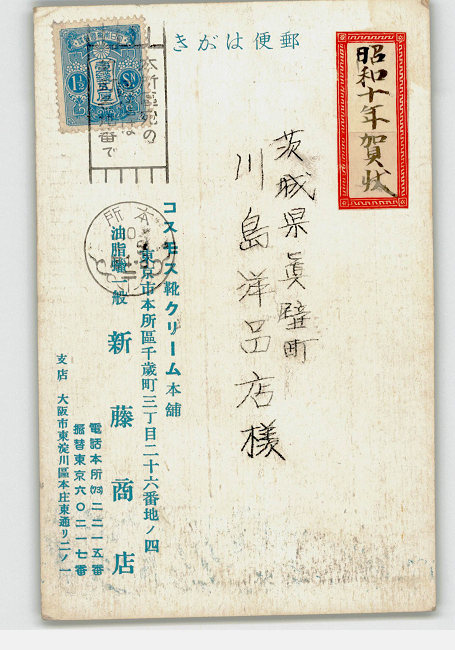 郵便はがき
昭和十年賀状
茨城県眞壁町
川島洋品店様
コスモス靴クリーム本舗
東京市本所區千歳町三丁目二十六番地ノ四
油脂蠟一般 新藤商店
電話本所(73)二二一五番
振替東京六〇二一七番
支店 大阪市東淀川區本庄東通リ二ノ一
壹錢五厘
1½ Sn
本所